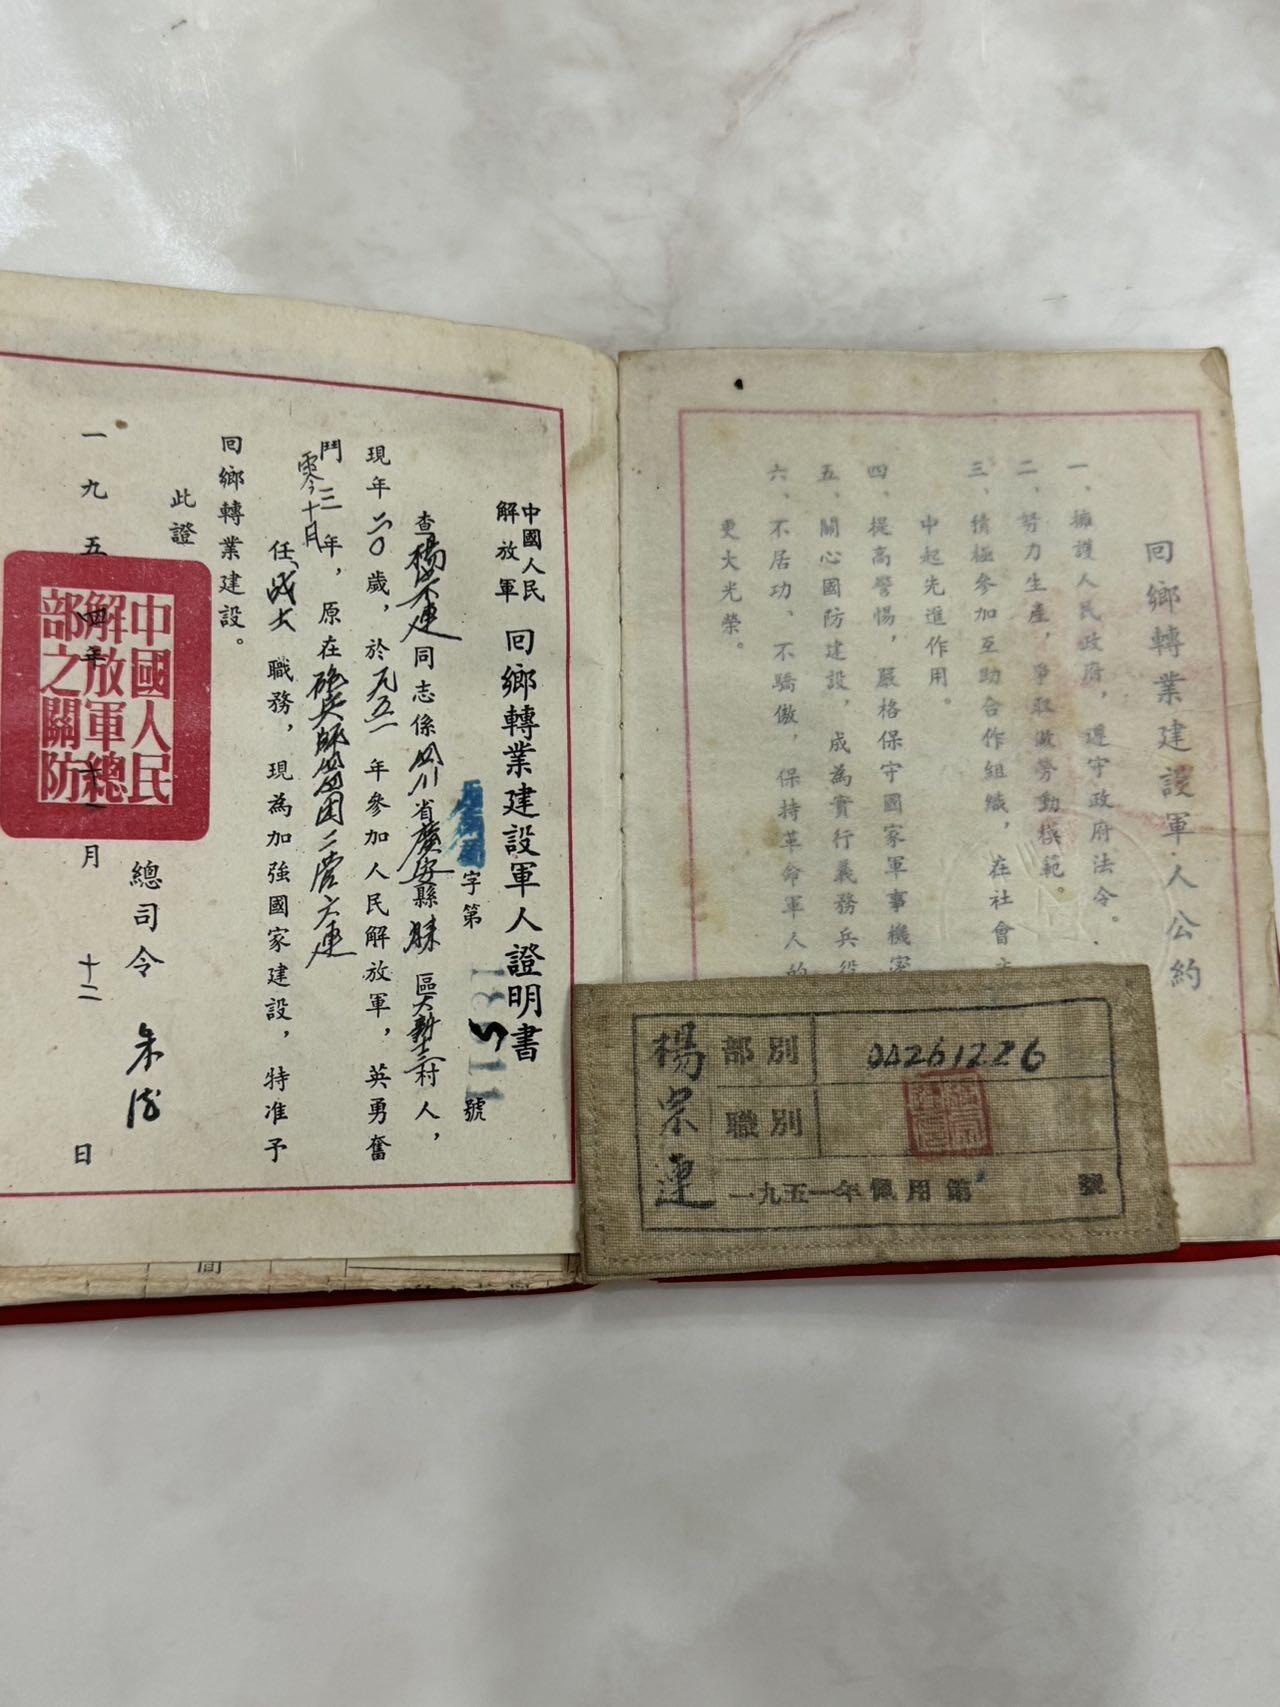 回鄉轉業建設軍人公約
一、擁護人民政府，遵守政府法令。
二、努力生產，爭取做勞動模範。
三、積極參加互助合作組織，在社會
中起先進作用。
四、提高警惕，嚴格保守國家軍事機密
五、關心國防建設，成為實行義務兵役
六、不居功、不驕傲，保持革命軍人的
更大光榮。
中國人民
解放軍
回鄉轉業建設軍人證明書
字第
號
查楊宗連同志係四川省廣安縣
區
村人，
現年二〇歲，於一九五一年參加人民解放軍，英勇奮
鬥三年零十月，原在砲兵師四四團二營六連
任戰士職務，現為加強國家建設，特准予
回鄉轉業建設。
此證
總司令 朱德
一九五四年十一月十二日
中國人民
解放軍總
部之關防
楊宗連
部別 0A261226
職別
一九五一年佩用第 號
間